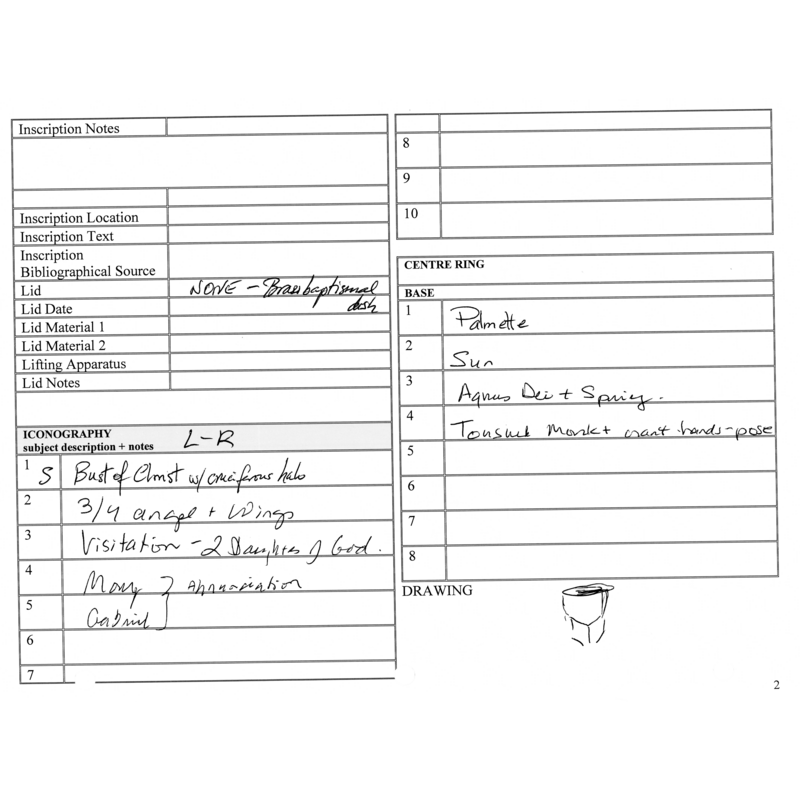 Inscription Notes
Inscription Location
Inscription Text
Inscription
Bibliographical Source
Lid NONE – Brass baptismal
dish
Lid Date
Lid Material 1
Lid Material 2
Lifting Apparatus
Lid Notes
ICONOGRAPHY L-R
subject description + notes
1 S Bust of Christ w/ cruciferous halo
2 3/4 angel + Wings
3 Visitation – 2 Daughters of God.
4 Mary } Annunciation
5 Gabriel
6
7
8
9
10
CENTRE RING
BASE
1 Palmette
2 Sun
3 Agnus Dei +
4 Monk + hands-pose
5
6
7
8
DRAWING
2